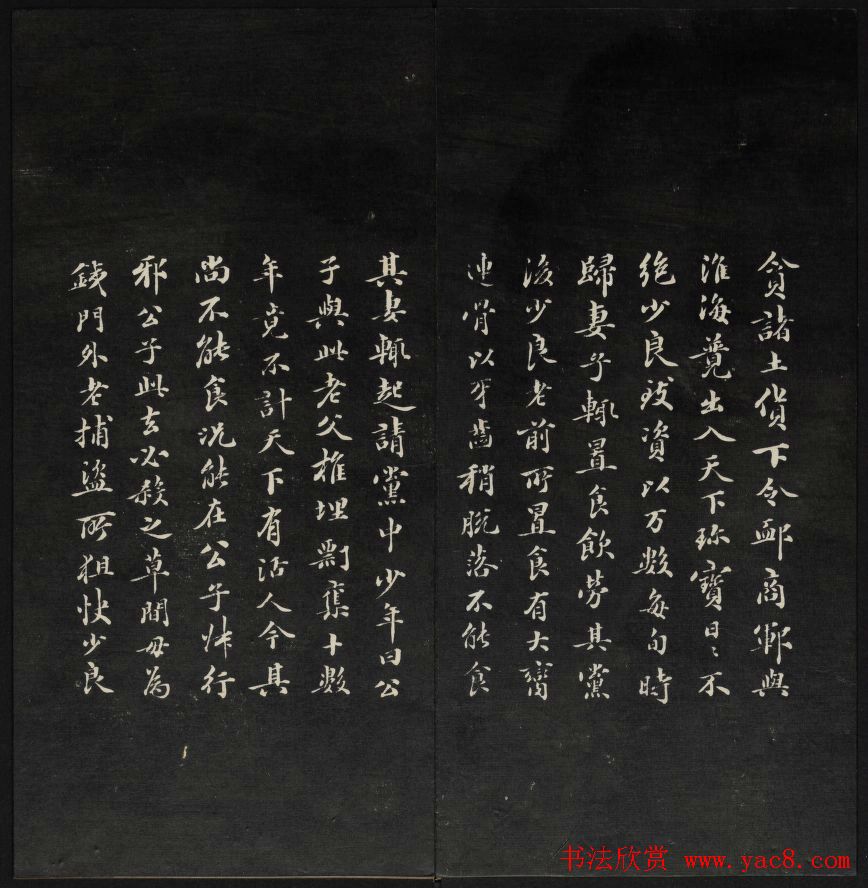 貪諸土貨下令卹商鄉與
淮海競出入天下珎寶日〻不
絶少良致資以万數每旬時
歸妻子輒置食飲勞其黨
後少良老前所置食有大臠
連骨以牙齒稍脫落不能食
其妻輒起請黨中少年曰公
子與此老父椎埋剽奪十數
年竟不計天下有活人今其
尚不能食况能在公子叔行
耶公子此去必殺之草間毋為
鐵門外老捕盜所狙快少良
书法欣赏 www.yac8.com